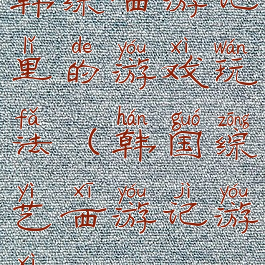 韩综西游记
lǐ de yóu xì wán
里的游戏玩
fǎ hán guó zōng
法（韩国综
yì xī yóu jì yóu
艺西游记游
xì